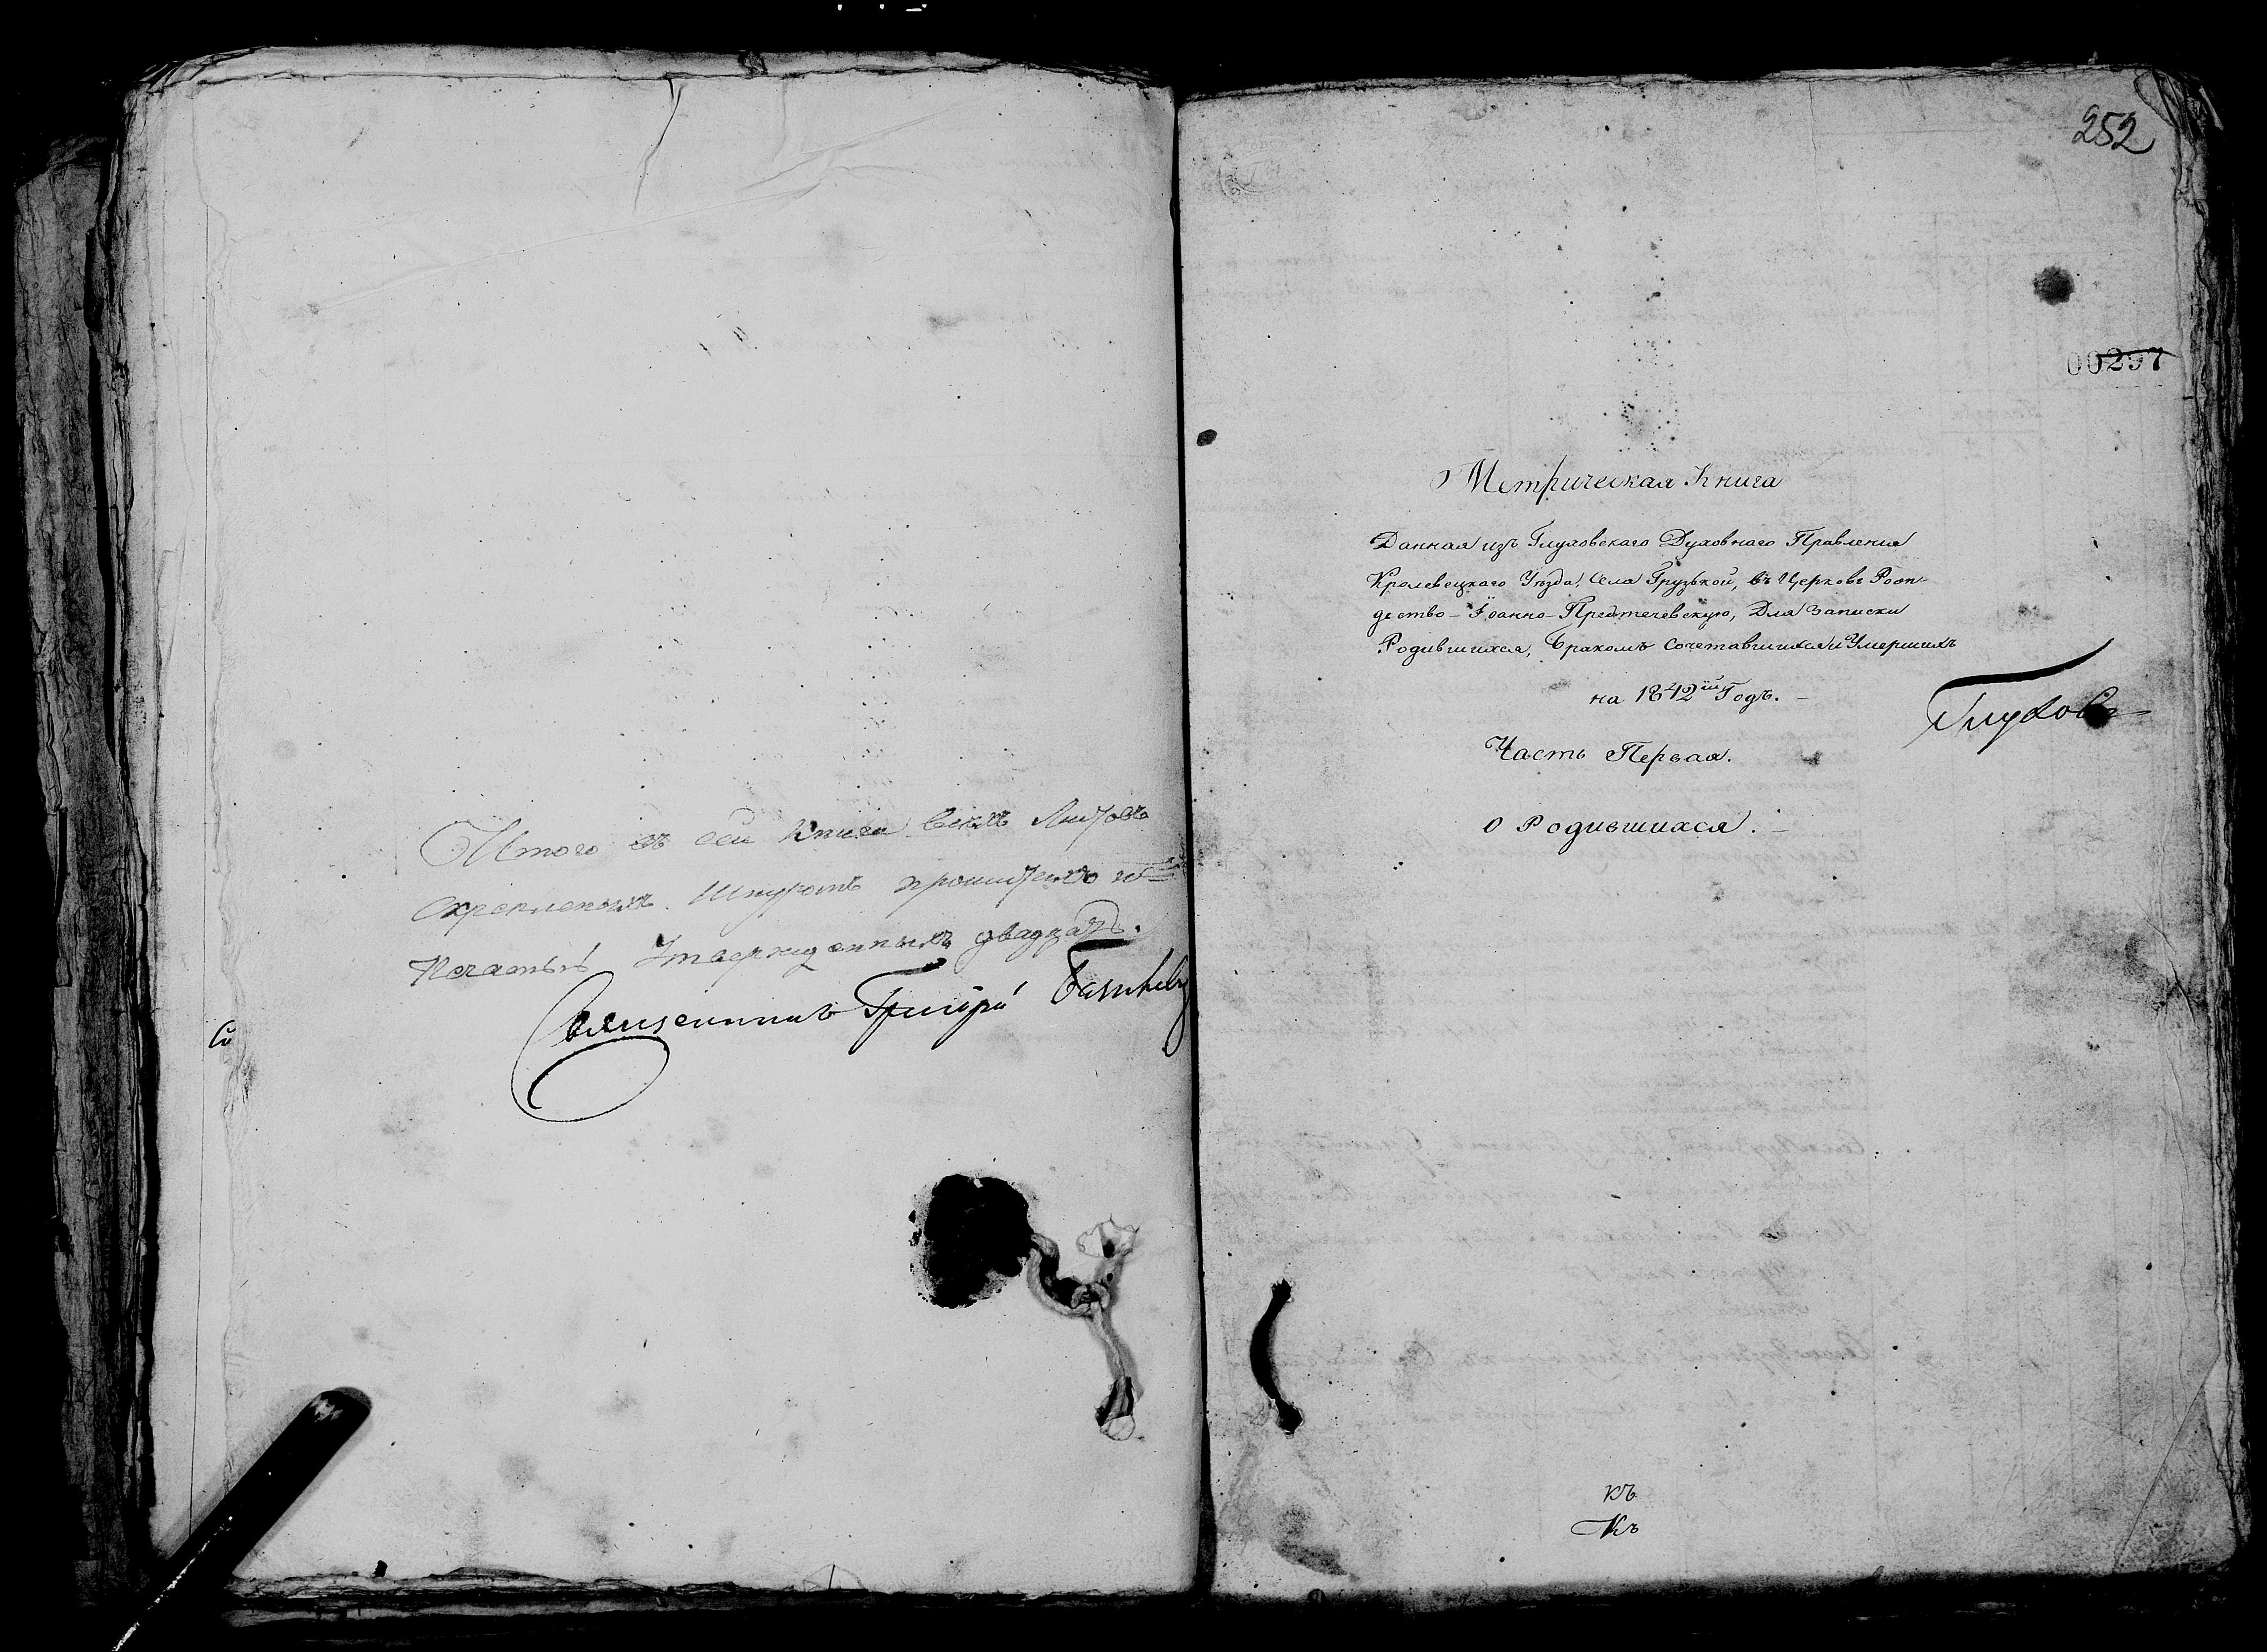 Итого въ сей книги всехъ листовъ
скрепленыхъ. Шнуромъ прошитыхъ и
Печатью Утвержденныхъ двадцать.
Священникъ Григорій
Св
252
00297
Метрическая Книга
Данная изъ Глуховскаго Духовнаго Правления
Кролевецкаго Уѣзда, Села Грузькой, въ Церковь Рож-
дество-Іоанно-Предтечевскую, Для записки
Родившихся, Бракомъ Сочетавшихся и Умершихъ
на 1842ій Годъ.-
Глуховс-
Часть Первая.
О Родившихся.-
къ
Къ